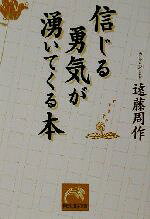 信じる
勇気が
湧いてくる本
遠藤周作